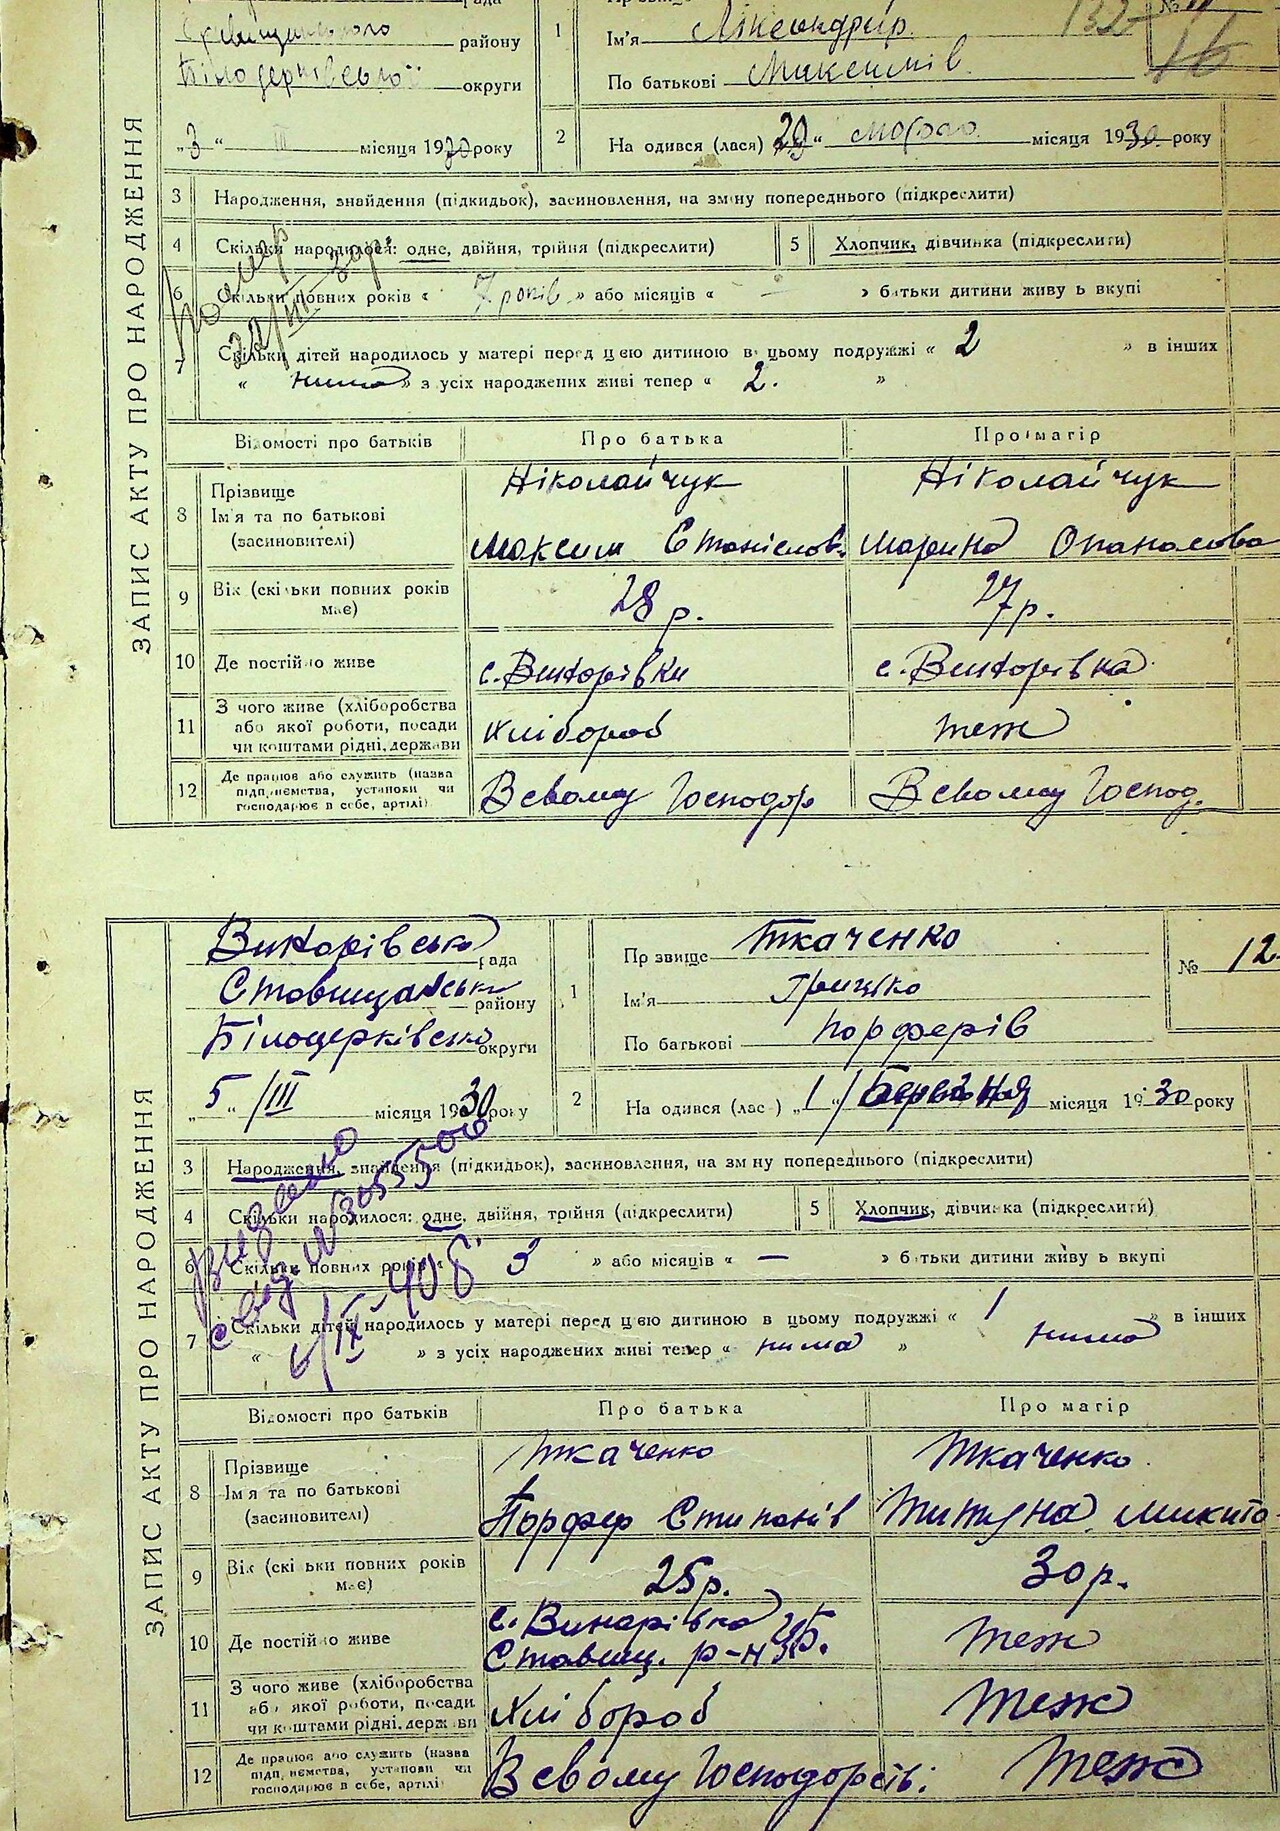 ЗАПИС АКТУ ПРО НАРОДЖЕННЯ
району
Білоцерківської округи
„3“ III місяця 1930 року
1
Ім'я Александир
По батькові Максимів
132
2
На одився (лася) „29“ лютого місяця 1930 року
3 Народження, знайдення (підкидьок), засиновлення, на зміну попереднього (підкреслити)
4 Скільки народилося: одне, двійня, трійня (підкреслити)
5 Хлопчик, дівчинка (підкреслити)
6 Скільки повних років « 7 років » або місяців « — » батьки дитини живуть вкупі
7 Скільки дітей народилось у матері перед цією дитиною в цьому подружжі « 2 » в інших
« нима » з усіх народжених живі тепер « 2. »
Відомості про батьків
Про батька
Про матір
8
Прізвище
Ім'я та по батькові
(засиновителі)
Ніколайчук
Максим Станіслов.
Ніколайчук
Марина Опанасова
9 Вік (скільки повних років має)
28 р.
27 р.
10 Де постійно живе
с. Винарівки
с. Винарівка
11
З чого живе (хліборобства
або якої роботи, посади
чи коштами рідні, держави
Хлібороб
теж
12
Де працює або служить (назва
підприємства, установи чи
господарює в себе, артілі)
Всвому Господар
Всвому Господ.
ЗАПИС АКТУ ПРО НАРОДЖЕННЯ
Винарівська рада
Ставищанська району
Білоцерківсько округи
„5“ /III місяця 1930 року
1
Пр звище Ткаченко
Ім'я Грицько
По батькові Порферів
№ 12
2
На одився (лас ) „1“ Березня місяця 1930 року
3 Народження, знайдення (підкидьок), засиновлення, на зм ну попереднього (підкреслити)
4 Скільки народилося: одне, двійня, трійня (підкреслити)
5 Хлопчик, дівчинка (підкреслити)
6 Скільки повних років « 3 » або місяців « — » батьки дитини живуть вкупі
7 Скільки дітей народилось у матері перед цією дитиною в цьому подружжі « 1 » в інших
« » з усіх народжених живі тепер « нима » нима
Відомості про батьків
Про батька
Про матір
8
Прізвище
Ім'я та по батькові
(засиновителі)
Ткаченко
Порфер Стипанів
Ткаченко
Титяна Микито
9 Вік (скільки повних років має)
25 р.
30 р.
10 Де постійно живе
с. Винарівка
Ставищ. р-н
теж
11
З чого живе (хліборобства
або якої роботи, посади
чи коштами рідні, держави
Хлібороб
теж
12
Де працює або служить (назва
підприємства, установи чи
господарює в себе, артілі)
Всвому Господорств:
теж